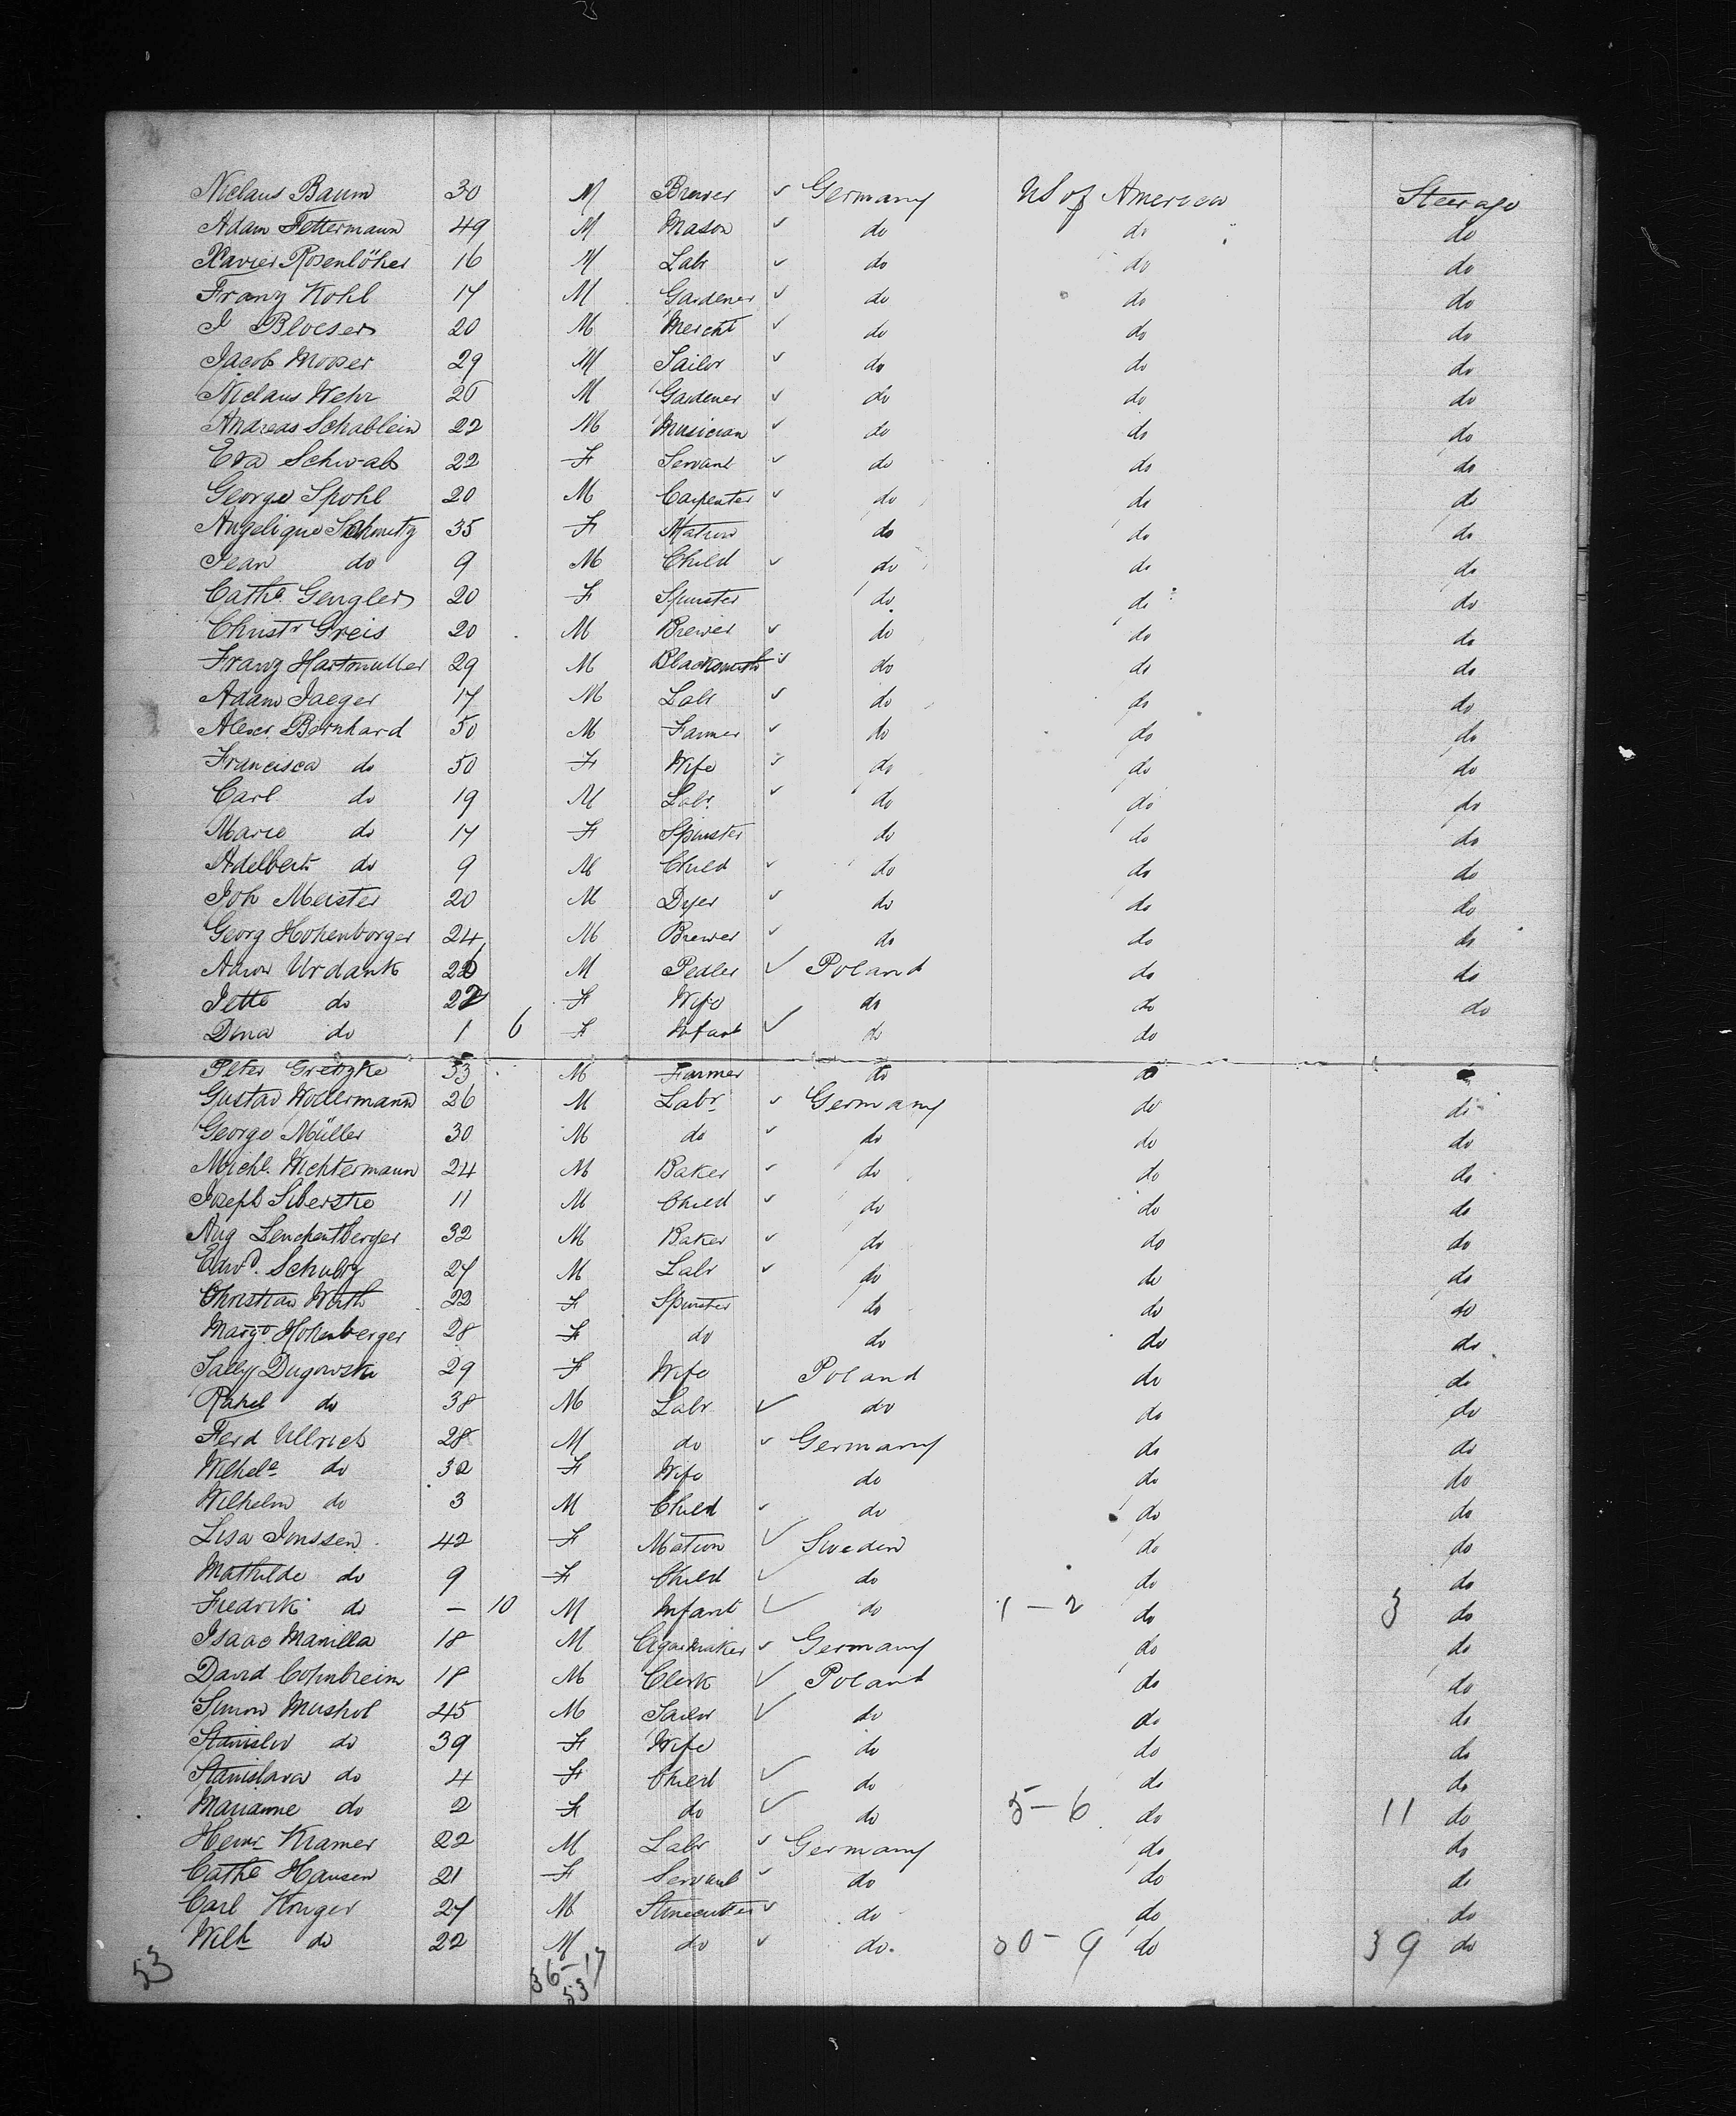 Niclaus Baum 30 M Brewer ✓ Germany US of America Steerage
Adam Fettermann 49 M Mason ✓ do do do
Xavier Rosenlöher 16 M Labr ✓ do do do
Franz Kohl 17 M Gardener ✓ do do do
J Bloeser 20 M Mercht ✓ do do do
Jacob Moser 29 M Tailor ✓ do do do
Niclaus Wehr M Gardener ✓ do do do
Andreas Schablein 22 M Musician ✓ do do do
Eva Schwab 22 F Servant ✓ do do do
George Spohl 20 M Carpenter ✓ do do do
Angelique Schmitz 35 F Matron do do do
Jean do 9 M Child ✓ do do do
Cathe Gengler 20 F Spinster do do do
Christr Greis 20 M Brewer ✓ do do do
Franz Hartmuller 29 M Blacksmith ✓ do do do
Adam Jaeger 17 M Labr ✓ do do do
Alexr. Bernhard 50 M Farmer ✓ do do do
Francisca do 50 F Wife ✓ do do do
Carl do 19 M Labr. ✓ do do do
Marie do 17 F Spinster do do do
Adelbert do 9 M Child ✓ do do do
Joh Meister 20 M Dyer ✓ do do do
Georg Hohenborger 24 M Brewer ✓ do do do
Aaron Urdank M Pedler ✓ Poland do do
Jette do 22 F Wife do do do
Dina do 1 6 F Infant ✓ do do do
Peter Gretzke 53 M Farmer do do
Gustav Wollermann 26 M Labr ✓ Germany do do
George Müller 30 M do ✓ do do do
Michl. Wichtermann 24 M Baker ✓ do do do
Joseph 11 M Child ✓ do do do
Aug 32 M Baker ✓ do do do
Edwd. Schulz 27 M Labr ✓ do do do
Christian Wirth 22 F Spinster do do do
Margt. Hohenberger 28 F do do do do
Sally Dugowski 29 F Wife Poland do do
Rahel do 38 M Labr ✓ do do do
Ferd Ullrich 28 M do ✓ Germany do do
Wilhele do 32 F Wife do do do
Wilhelm do 3 M Child ✓ do do do
Lisa Jonssen 42 F Matron ✓ Sweden do do
Mathilde do 9 F Child ✓ do do do
Fredrik do — 10 M Infant ✓ do 1 – 2 do 3 do
Isaac Manilla 18 M Cigarmaker ✓ Germany do do
David Cohnheim 18 M Clerk ✓ Poland do do
Simon Mushol 45 M Tailor ✓ do do do
Stanislw do 39 F Wife do do do
Stanislava do 4 F Child ✓ do do do
Marianne do 2 F do ✓ do 5 – 6 do 11 do
Heinr Kramer 22 M Labr ✓ Germany do do
Cathe Hansen 21 F Servant ✓ do do do
Carl Kruger 27 M Stonecutter ✓ do do do
Wilh do 22 M do ✓ do. 30 – 9 do 39 do
53 36–17
53